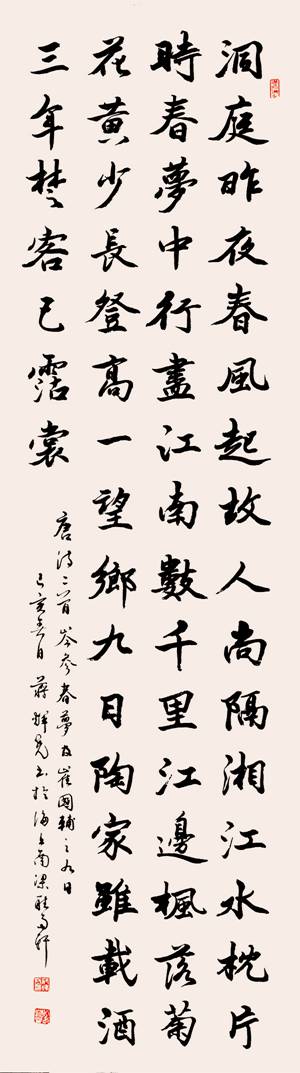 洞庭昨夜春風起故人尚隔湘江水枕片
時春夢中行盡江南數千里江邊楓落菊
花黃少長登高一望鄉九日陶家雖載酒
三年楚客已霑裳
唐詩二首岑參春夢及崔國輔之九日
己亥日蔣書於海上南